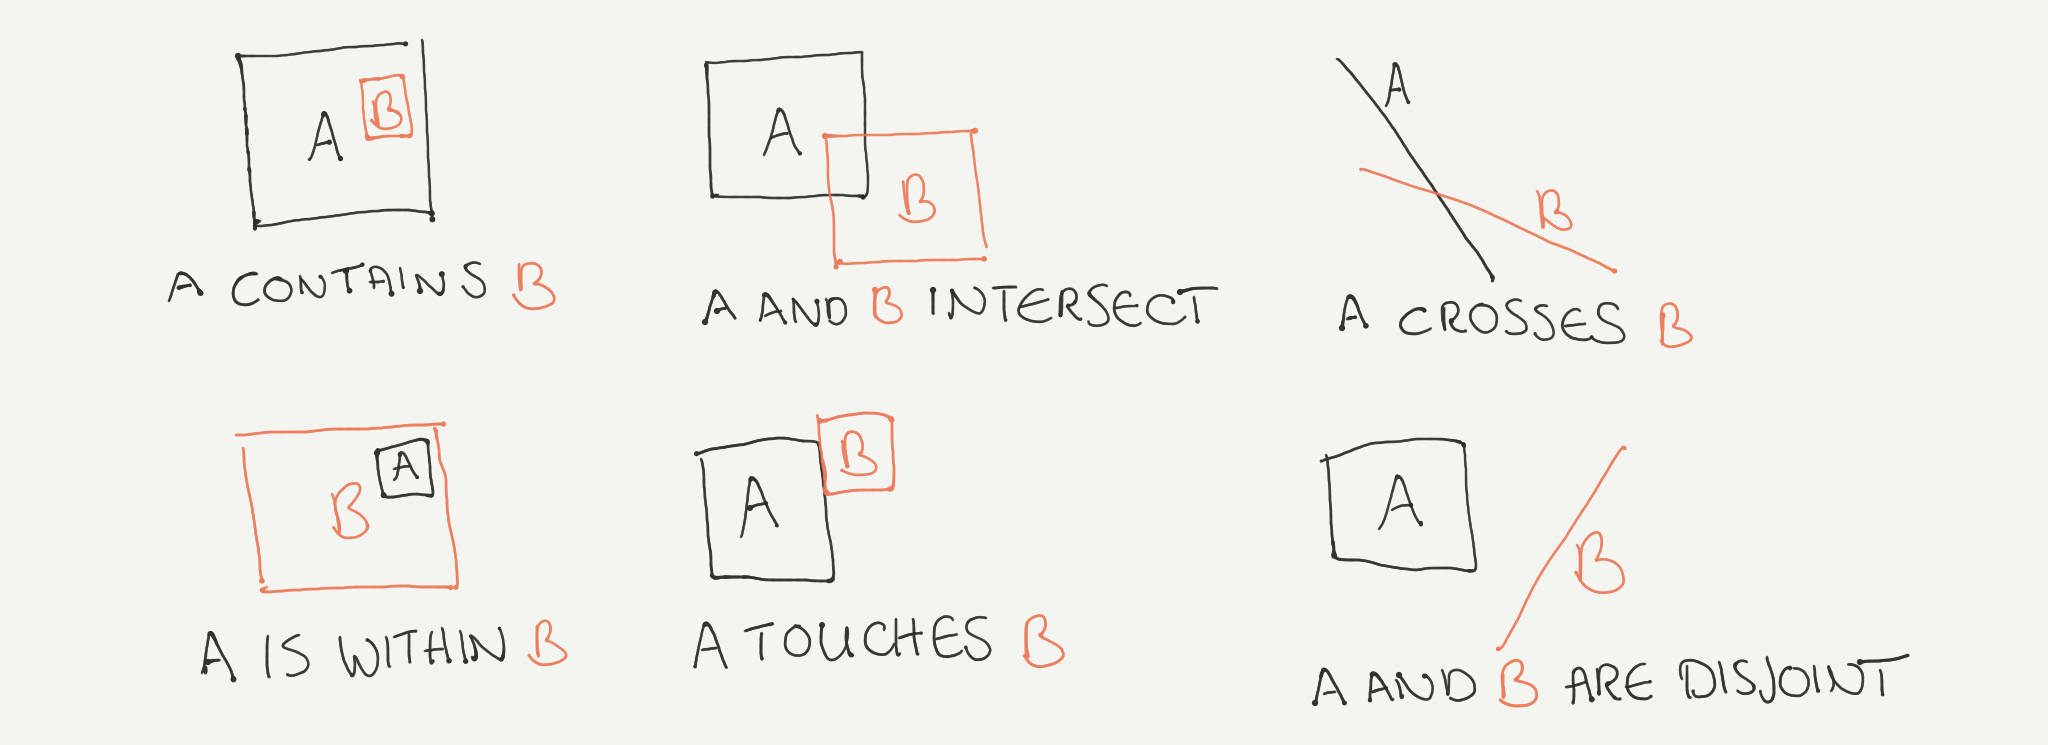 A
B
A CONTAINS B
A
B
A AND B INTERSECT
A
B
A CROSSES B
B
A
A IS WITHIN B
A
B
A TOUCHES B
A
B
A AND B ARE DISJOINT